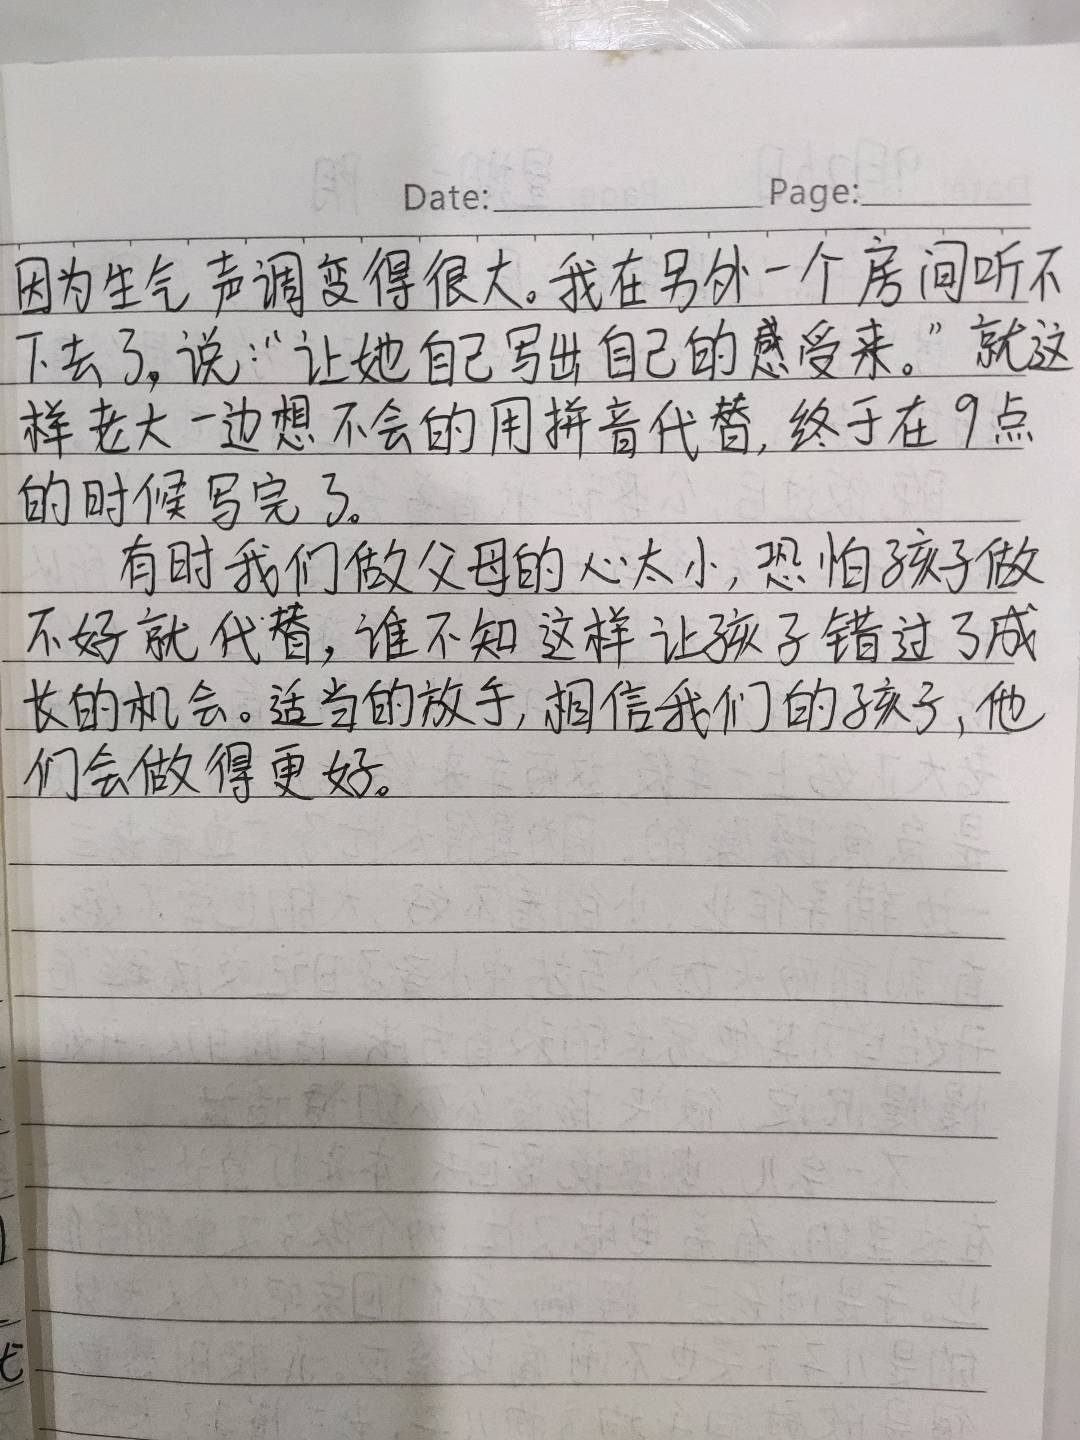 Date: Page:
因为生气声调变得很大。我在另外一个房间听不
下去了，说：“让她自己写出自己的感受来。”就这
样老大一边想不会的用拼音代替，终于在9点
的时候写完了。
有时我们做父母的心太小，恐怕孩子做
不好就代替，谁不知这样让孩子错过了成
长的机会。适当的放手，相信我们的孩子，他
们会做得更好。